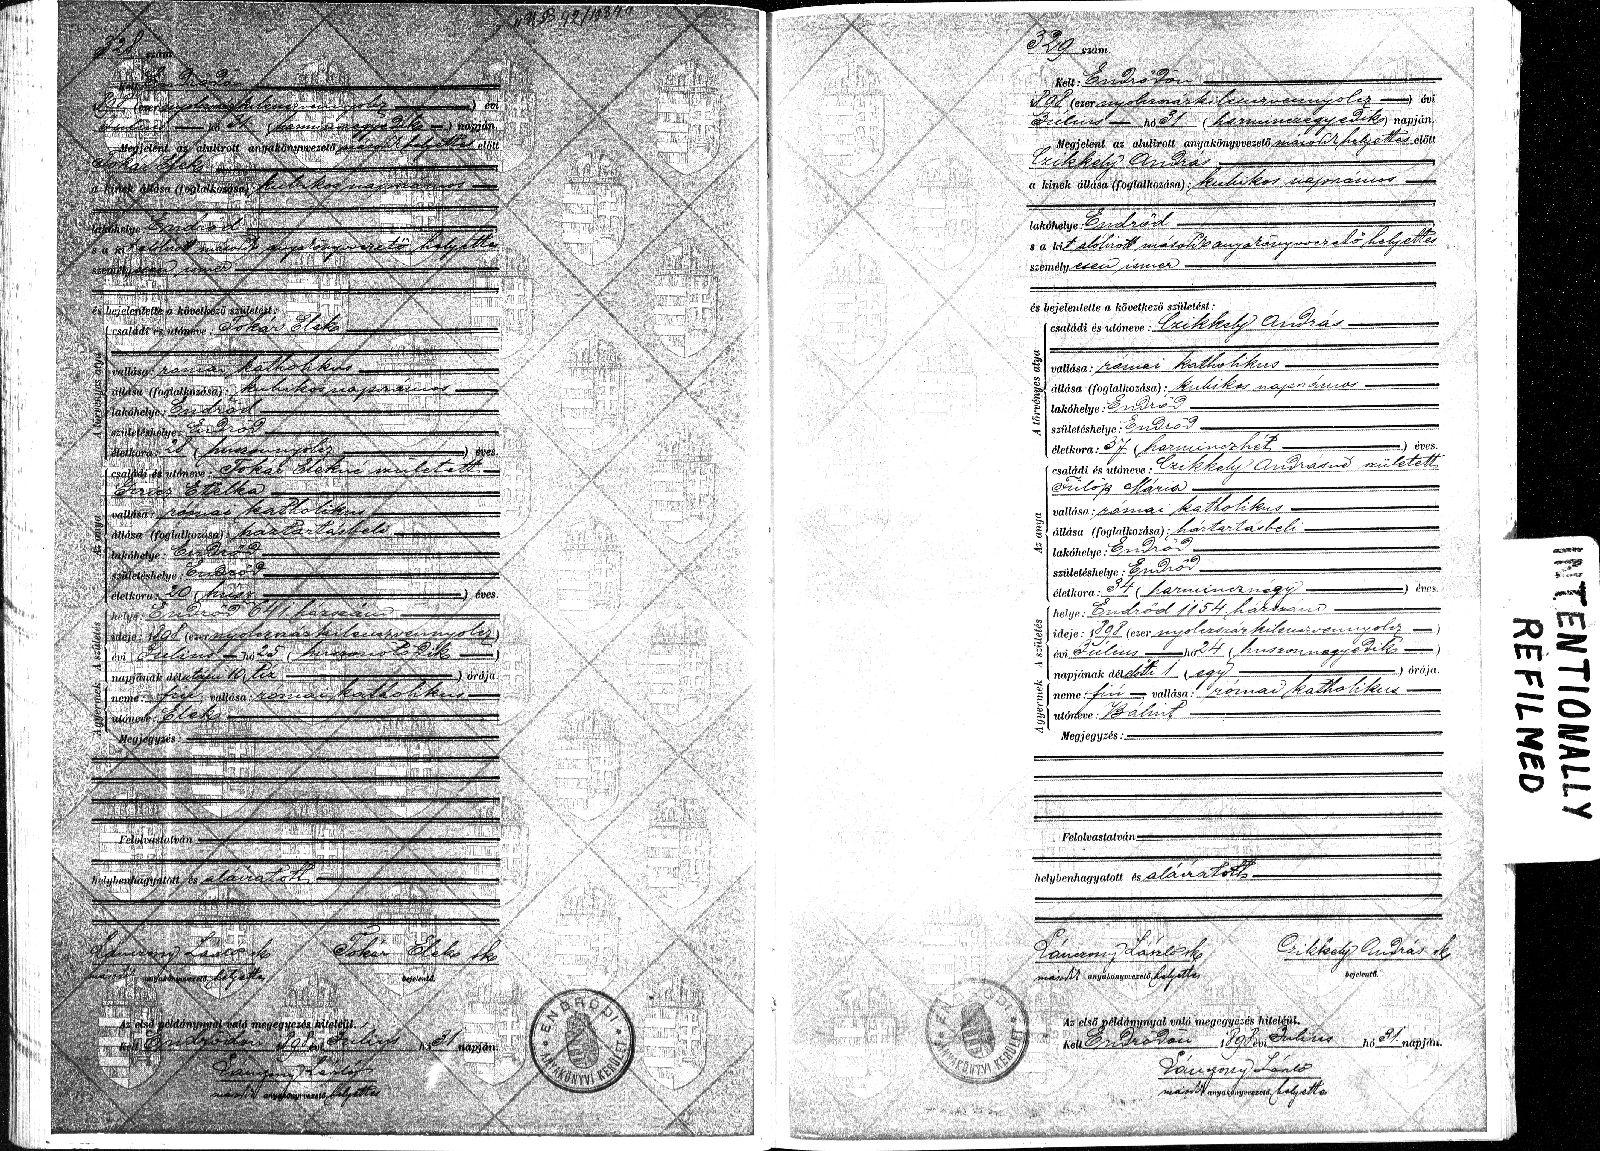 328 szám
Kelt: Endrődön
898 (ezer nyolczszázkilenczvennyolcz) évi
Július hó 31 (harminczegyedik) napján.
Megjelent az alulirott anyakönyvvezető második helyettes előtt
Tokár Elek
a kinek állása (foglalkozása): kubikos napszámos
lakóhelye Endrőd
s a kit alólirott második anyakönyvvezető helyettes
személyesen ismer
és bejelentette a következő születést:
A törvényes atya
családi és utóneve: Tokár Elek
vallása: római katholikus
állása (foglalkozása): kubikos napszámos
lakóhelye: Endrőd
születéshelye: Endrőd
életkora: 28 (huszonnyolcz) éves.
Az anya
családi és utóneve: Tokár Elekné született
Etelka
vallása: római katholikus
állása (foglalkozása): háztartásbeli
lakóhelye: Endrőd
születéshelye: Endrőd
életkora: 20 (húsz) éves.
A születés
helye: Endrőd 641 házszám
ideje: 1898 (ezer nyolczszázkilenczvennyolcz)
évi Július hó 25 (huszonötödik)
napjának délutáni 10 (tíz) órája
A gyermek
neme: fiú, vallása: római katholikus
utóneve: Elek
Megjegyzés:
Felolvastatván
helybenhagyatott és aláiratott
Lánczony László sk
másod. anyakönyvvezető, helyettes
Tokár Elek sk
bejelentő.
Az első példánynyal való megegyezés hiteléül.
Kelt Endrődön 1898 évi Július hó 31 napján.
Lánczony László
másod. anyakönyvvezető, helyettes
ENDRŐDI ANYAKÖNYVI KERÜLET
329 szám
Kelt: Endrődön
898 (ezer nyolczszázkilenczvennyolcz) évi
Július hó 31 (harminczegyedik) napján.
Megjelent az alulirott anyakönyvvezető második helyettes előtt
Czikkely András
a kinek állása (foglalkozása): kubikos napszámos
lakóhelye: Endrőd
s a kit alólirott második anyakönyvvezető helyettes
személyesen ismer
és bejelentette a következő születést:
A törvényes atya
családi és utóneve: Czikkely András
vallása: római katholikus
állása (foglalkozása): kubikos napszámos
lakóhelye: Endrőd
születéshelye: Endrőd
életkora: 37 (harminczhét) éves.
Az anya
családi és utóneve: Czikkely Andrásné született
Fülöp Mária
vallása: római katholikus
állása (foglalkozása): háztartásbeli
lakóhelye: Endrőd
születéshelye: Endrőd
életkora: 34 (harmincznégy) éves.
A születés
helye: Endrőd 1154 házszám
ideje: 1898 (ezer nyolczszázkilenczvennyolcz)
évi Július hó 24 (huszonnegyedik)
napjának délelőtti 1 (egy) órája.
A gyermek
neme: fiú vallása: római katholikus
utóneve: Bálint
Megjegyzés:
Felolvastatván
helybenhagyatott és aláiratott
Lánczony László sk
másod. anyakönyvvezető, helyettes
Czikkely András sk
bejelentő.
Az első példánynyal való megegyezés hiteléül.
Kelt Endrődön 1898 évi Július hó 31 napján.
Lánczony László
másod. anyakönyvvezető, helyettes
ENDRŐDI ANYAKÖNYVI KERÜLET
INTENTIONALLY
REFILMED